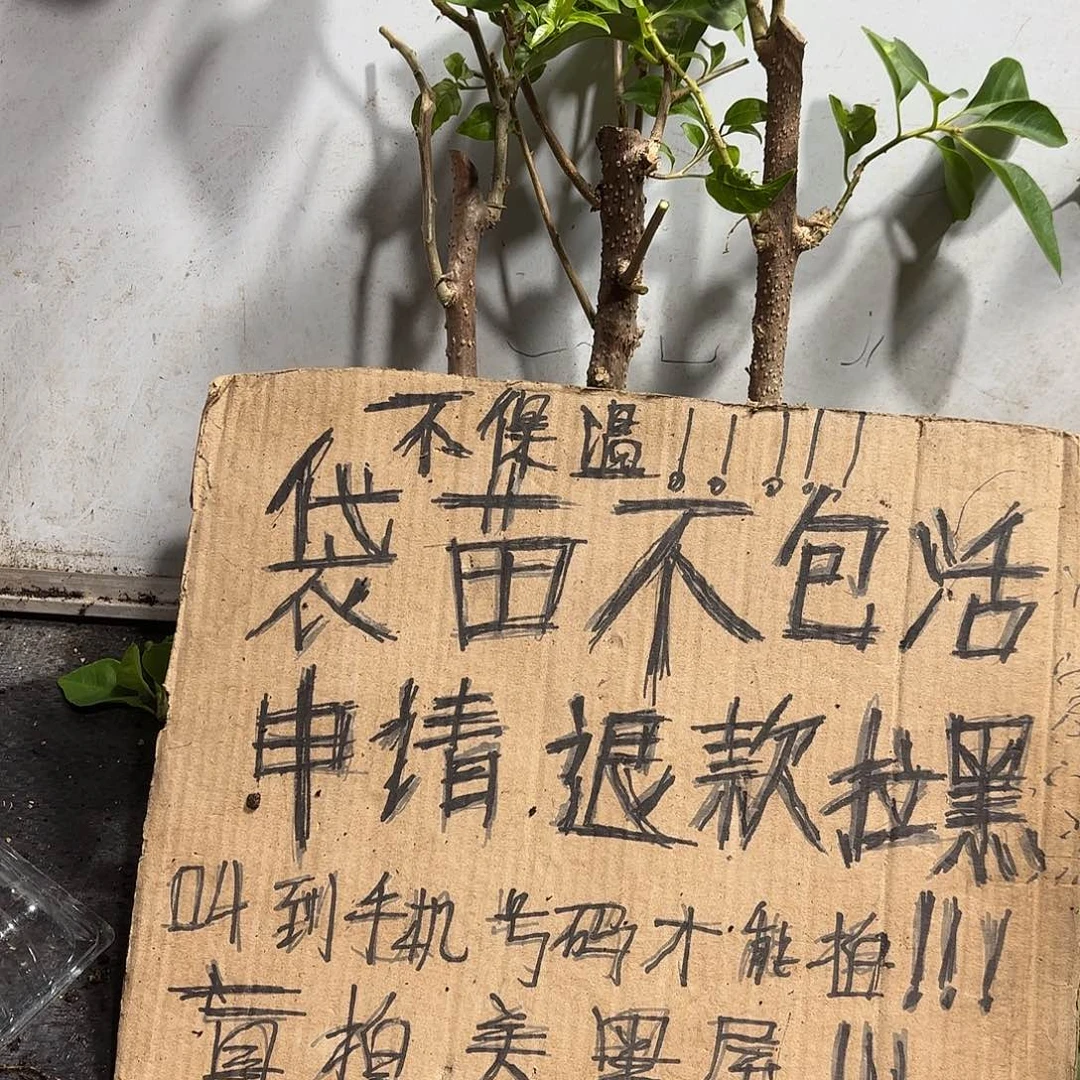 不保温!!!!!
袋苗不包活
申请退款拉黑
叫到手机号码才能拍!!!
直拍关黑屋!!!